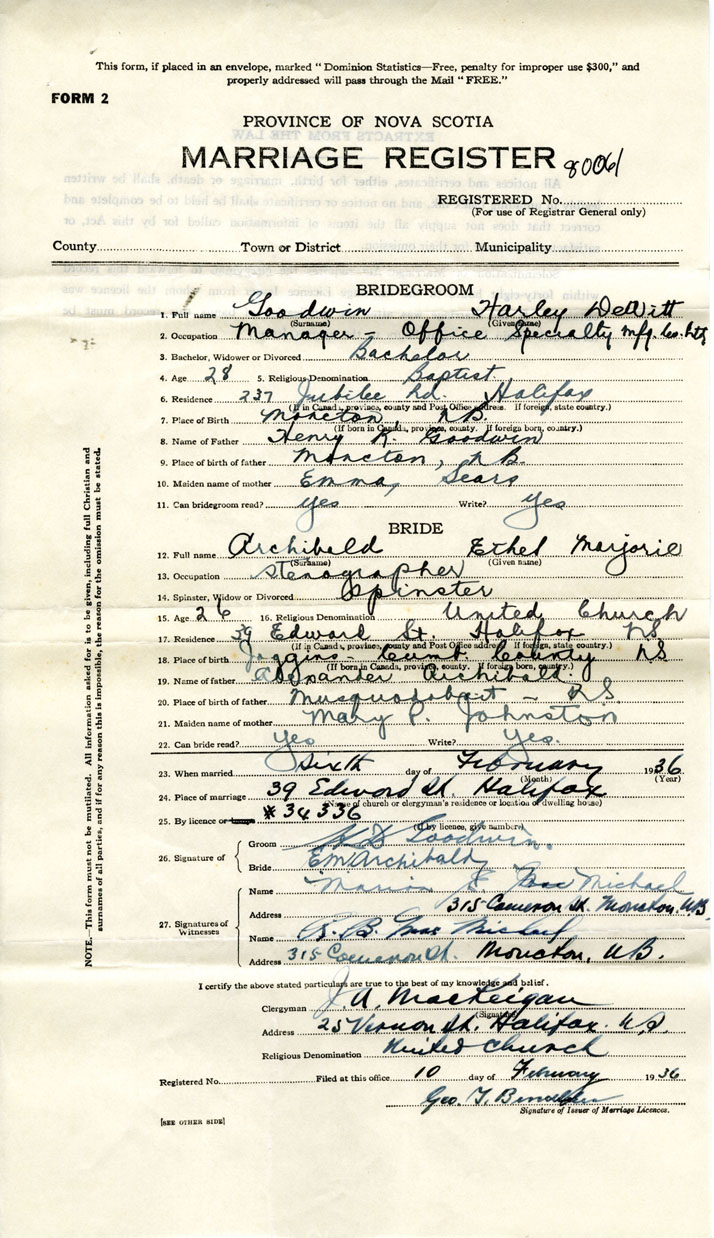 This form, if placed in an envelope, marked "Dominion Statistics—Free, penalty for improper use $300," and
properly addressed will pass through the Mail "FREE."
FORM 2
PROVINCE OF NOVA SCOTIA
MARRIAGE REGISTER 8006
REGISTERED No.
(For use of Registrar General only)
County Town or District Municipality
BRIDEGROOM
1. Full name Goodwin Harley DeWitt
(Surname) (Given name)
2. Occupation Manager - Office Specialty Mfg. Co. Ltd
3. Bachelor, Widower or Divorced Bachelor
4. Age 28 5. Religious Denomination Baptist.
6. Residence 237 Jubilee Rd. Halifax
(If in Canada, province, county and Post Office address. If foreign, state country.)
7. Place of Birth Moncton N.B.
(If born in Canada, province, county. If foreign born, country.)
8. Name of Father Henry R. Goodwin
9. Place of birth of father Moncton, N.B.
10. Maiden name of mother Emma, Sears
11. Can bridegroom read? yes Write? yes
BRIDE
12. Full name Archibald Ethel Marjorie
(Surname) (Given name)
13. Occupation Stenographer
14. Spinster, Widow or Divorced Spinster
15. Age 26 16. Religious Denomination United Church
17. Residence 39 Edward St. Halifax NS
(If in Canada, province, county and Post Office address. If foreign, state country.)
18. Place of birth Joggins - Cumb. County NS
(If born in Canada, province, county. If foreign born, country.)
19. Name of father Alexander Archibald.
20. Place of birth of father Musquodobait - N.S.
21. Maiden name of mother Mary P. Johnston
22. Can bride read? Yes Write? Yes.
23. When married Sixth day of February 1936
(Month) (Year)
24. Place of marriage 39 Edward St. Halifax
(Name of church or clergyman's residence or location of dwelling house)
25. By licence or # 34336
(If by licence, give number)
26. Signature of
Groom H D Goodwin.
Bride E M Archibald
27. Signatures of Witnesses
Name Marion Mac Michael
Address 315 Cameron St. Moncton, N.B.
Name R. B. Mac Michael
Address 315 Cameron St. Moncton, N.B.
I certify the above stated particulars are true to the best of my knowledge and belief.
Clergyman J. A. MacKeigan
(Signature)
Address 25 Vernon St. Halifax. NS
Religious Denomination United Church
Registered No. Filed at this office 10 day of February 1936
Geo. T.
Signature of Issuer of Marriage Licences.
[SEE OTHER SIDE]
NOTE.—This form must not be mutilated. All information asked for is to be given, including full Christian and
surnames of all parties, and if for any reason this is impossible, the reason for the omission must be stated.